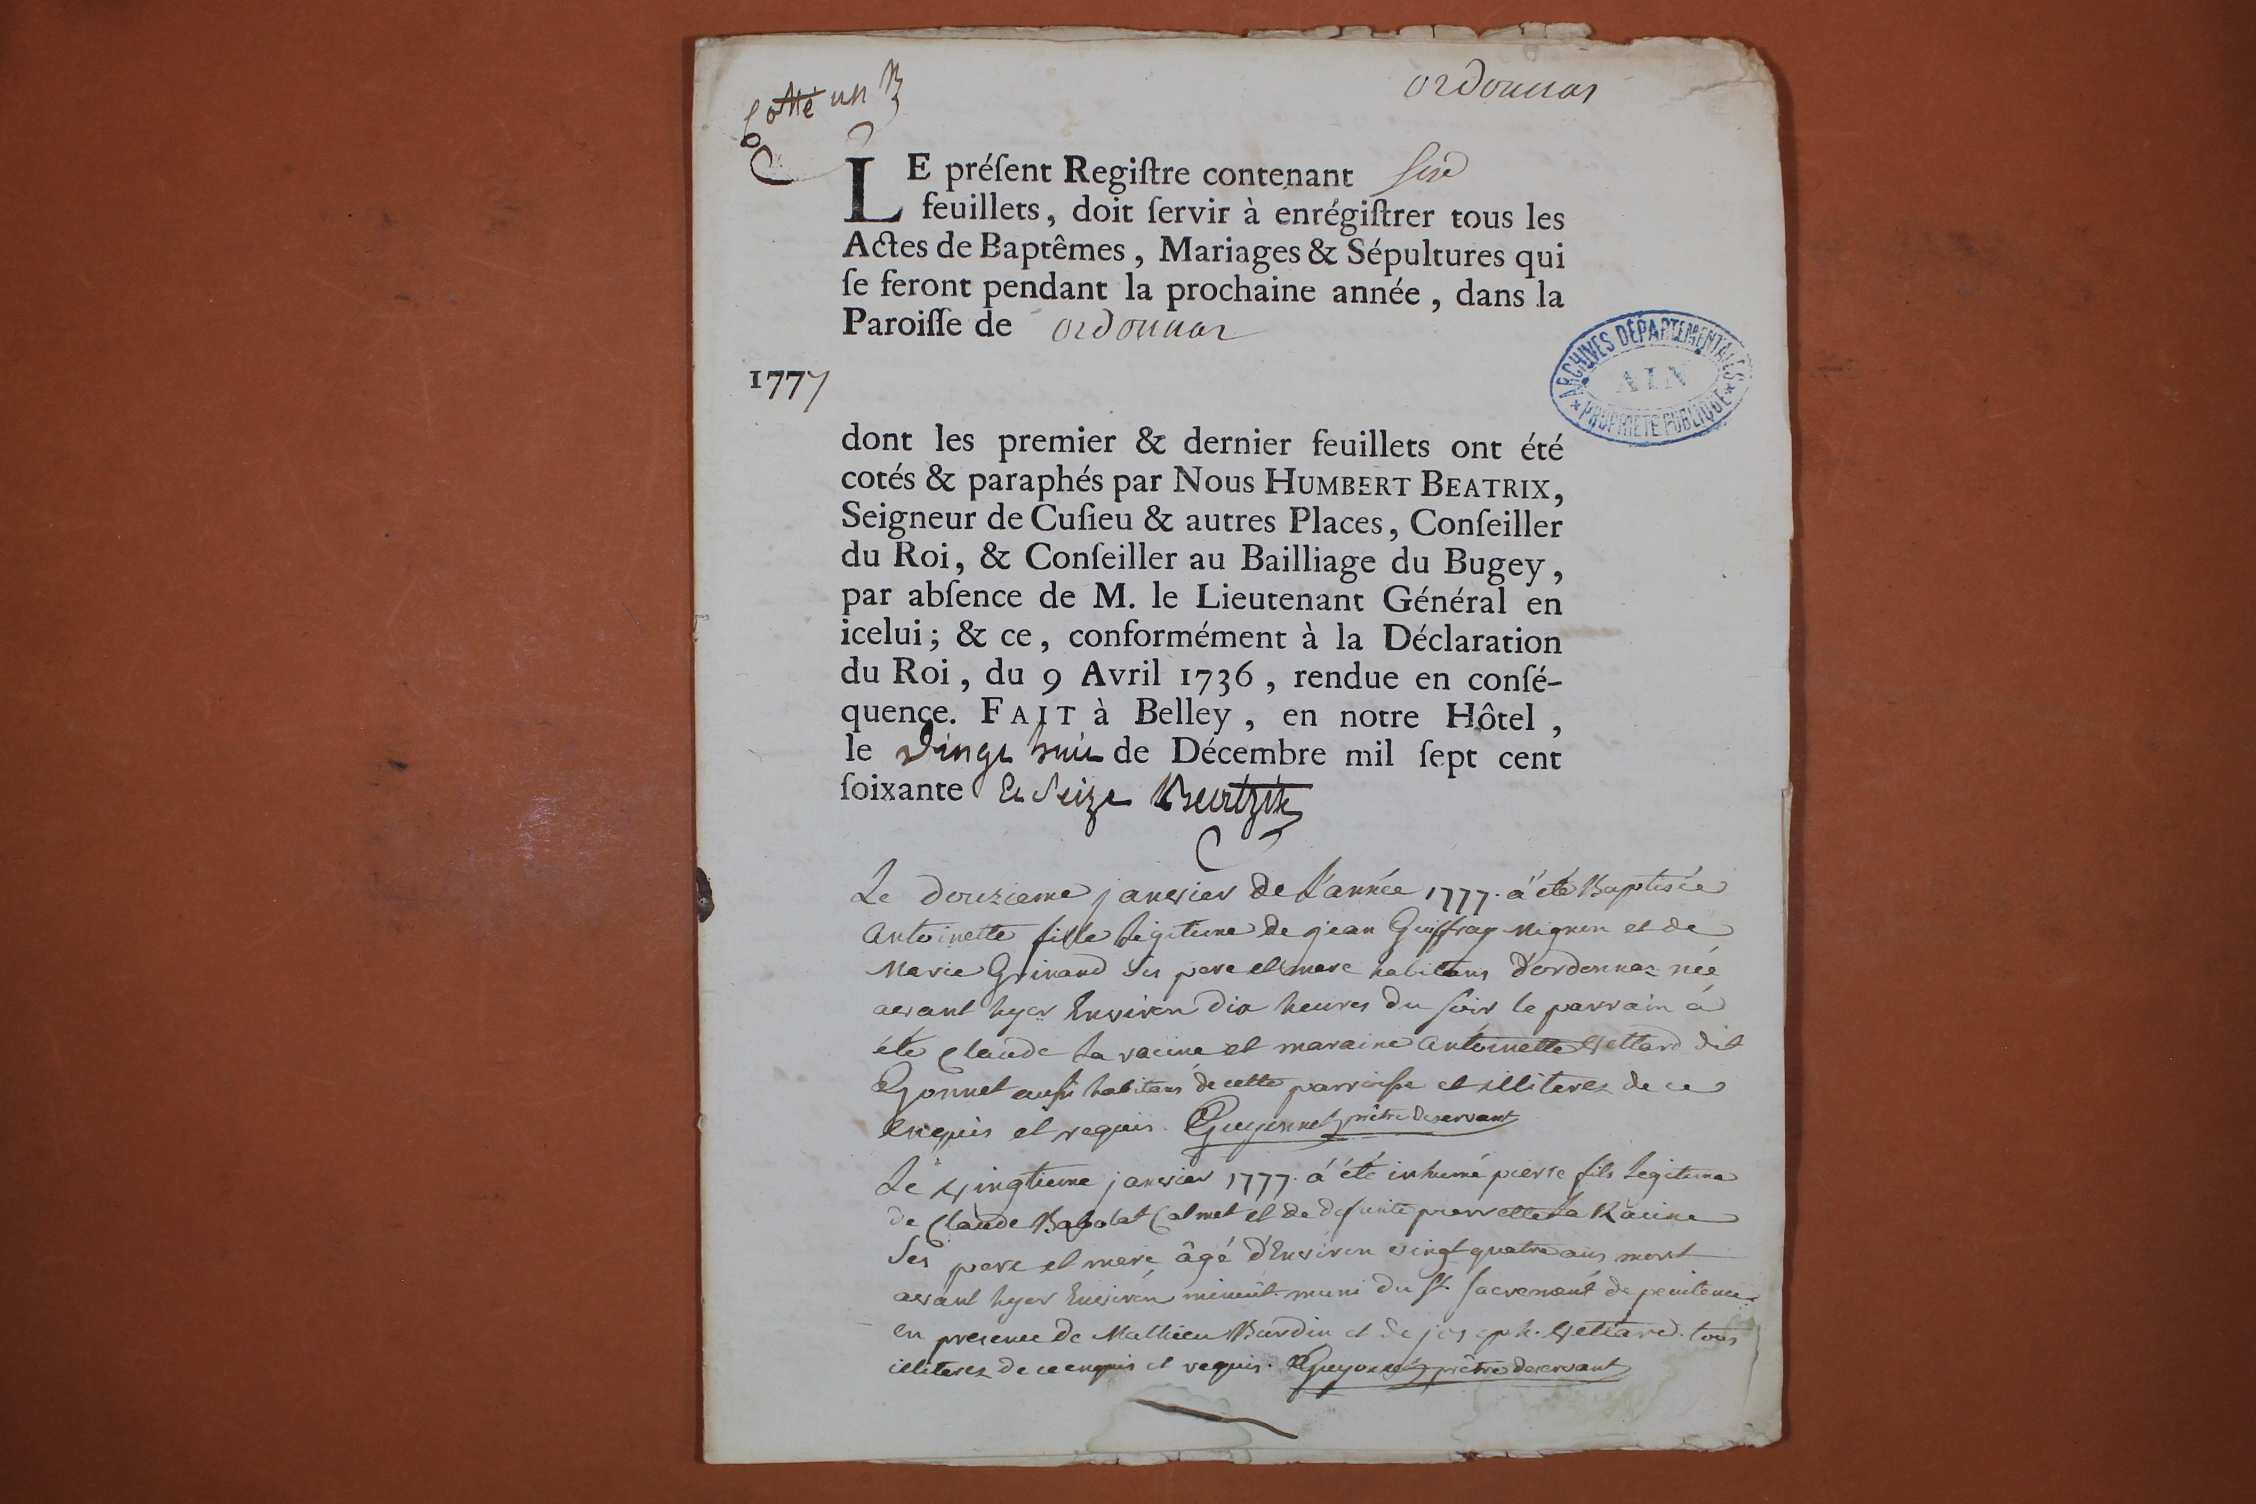 Cotté un B
ordonnas
LE préſent Regiſtre contenant six
feuillets, doit ſervir à enrégiſtrer tous les
Actes de Baptêmes, Mariages & Sépultures qui
ſe feront pendant la prochaine année, dans la
Paroiſſe de ordonnas
ARCHIVES DÉPARTEMENTALES
AIN
* PROPRIÉTÉ PUBLIQUE *
1777
dont les premier & dernier feuillets ont été
cotés & paraphés par Nous HUMBERT BEATRIX,
Seigneur de Cuſieu & autres Places, Conſeiller
du Roi, & Conſeiller au Bailliage du Bugey,
par abſence de M. le Lieutenant Général en
icelui; & ce, conformément à la Déclaration
du Roi, du 9 Avril 1736, rendue en conſé-
quence. FAIT à Belley, en notre Hôtel,
le vingt huit de Décembre mil ſept cent
ſoixante & seize Beatrix
Le douzieme janvier de l'année 1777. a été Baptisée
antoinette fille legitime de jean Guiffray mignon et de
Marie Grinand ses pere et mere habitans d'ordonnaz née
avant hyer Environ dix heures du soir le parrain a
été Claude La racine et maraine antoinette Vettard dit
Gonnet aussi habitans de cette parroisse et illiteres de ce
Enquis et requis. Guyonnet prêtre deservant
Le vingtieme janvier 1777. a été inhumé pierre fils legitime
de Claude Babolat Calmet et de defunte pierrette La Racine
ses pere et mere, âgé d'Environ vingt quatre ans mort
avant hyer Environ minuit muni du St. sacrement de penitence
en presence de Mathieu Burdin et de joseph Vettard. tous
illiteres de ce enquis et requis. Guyonnet prêtre deservant